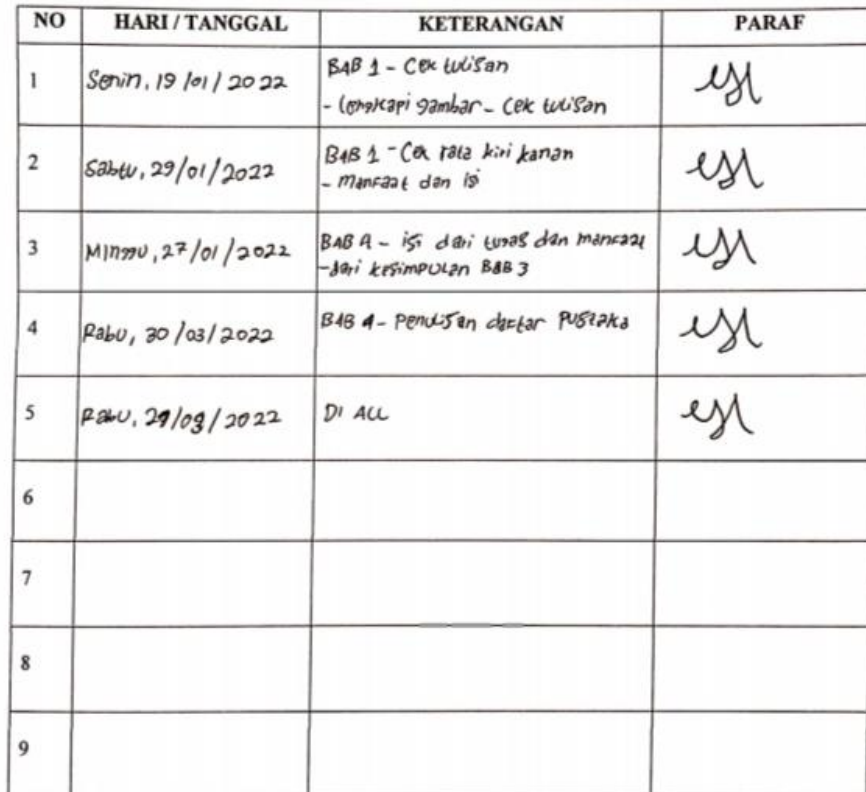 NO HARI / TANGGAL KETERANGAN PARAF
1 Senin, 19/01/2022 BAB 1 - Cek tulisan
- lengkapi gambar - Cek tulisan
2 Sabtu, 29/01/2022 BAB 1 - Cek rata kiri kanan
- Manfaat dan isi
3 Minggu, 27/01/2022 BAB 4 - isi dari tugas dan manfaat
- dari kesimpulan BAB 3
4 Rabu, 30/03/2022 BAB 4 - Penulisan daftar Pustaka
5 Rabu, DI ACC
6
7
8
9